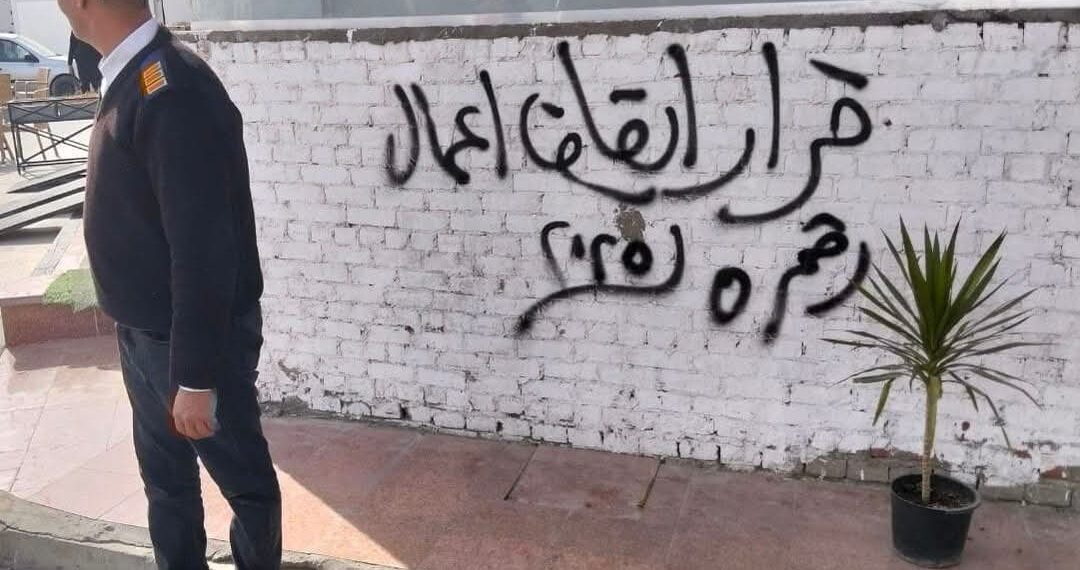 قرار ايقاف اعمال
رقم ٥ لسنة ٢٠٢٥